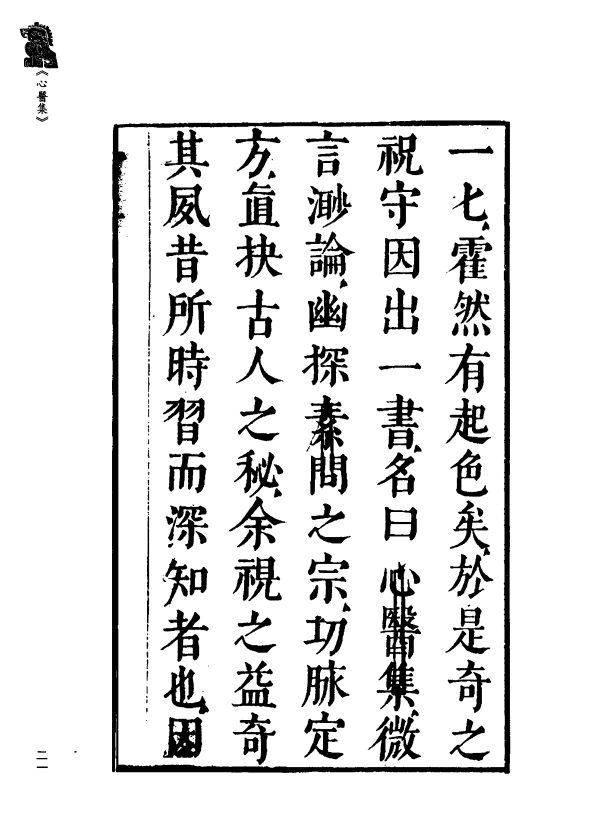 《心醫集》
一七、霍然有起色矣、於是奇之
祝守因出一書、名曰心醫集、微
言渺論、幽探素問之宗、切脉定
方、直抉古人之秘、余視之益奇
其夙昔所時習而深知者也、因
二一